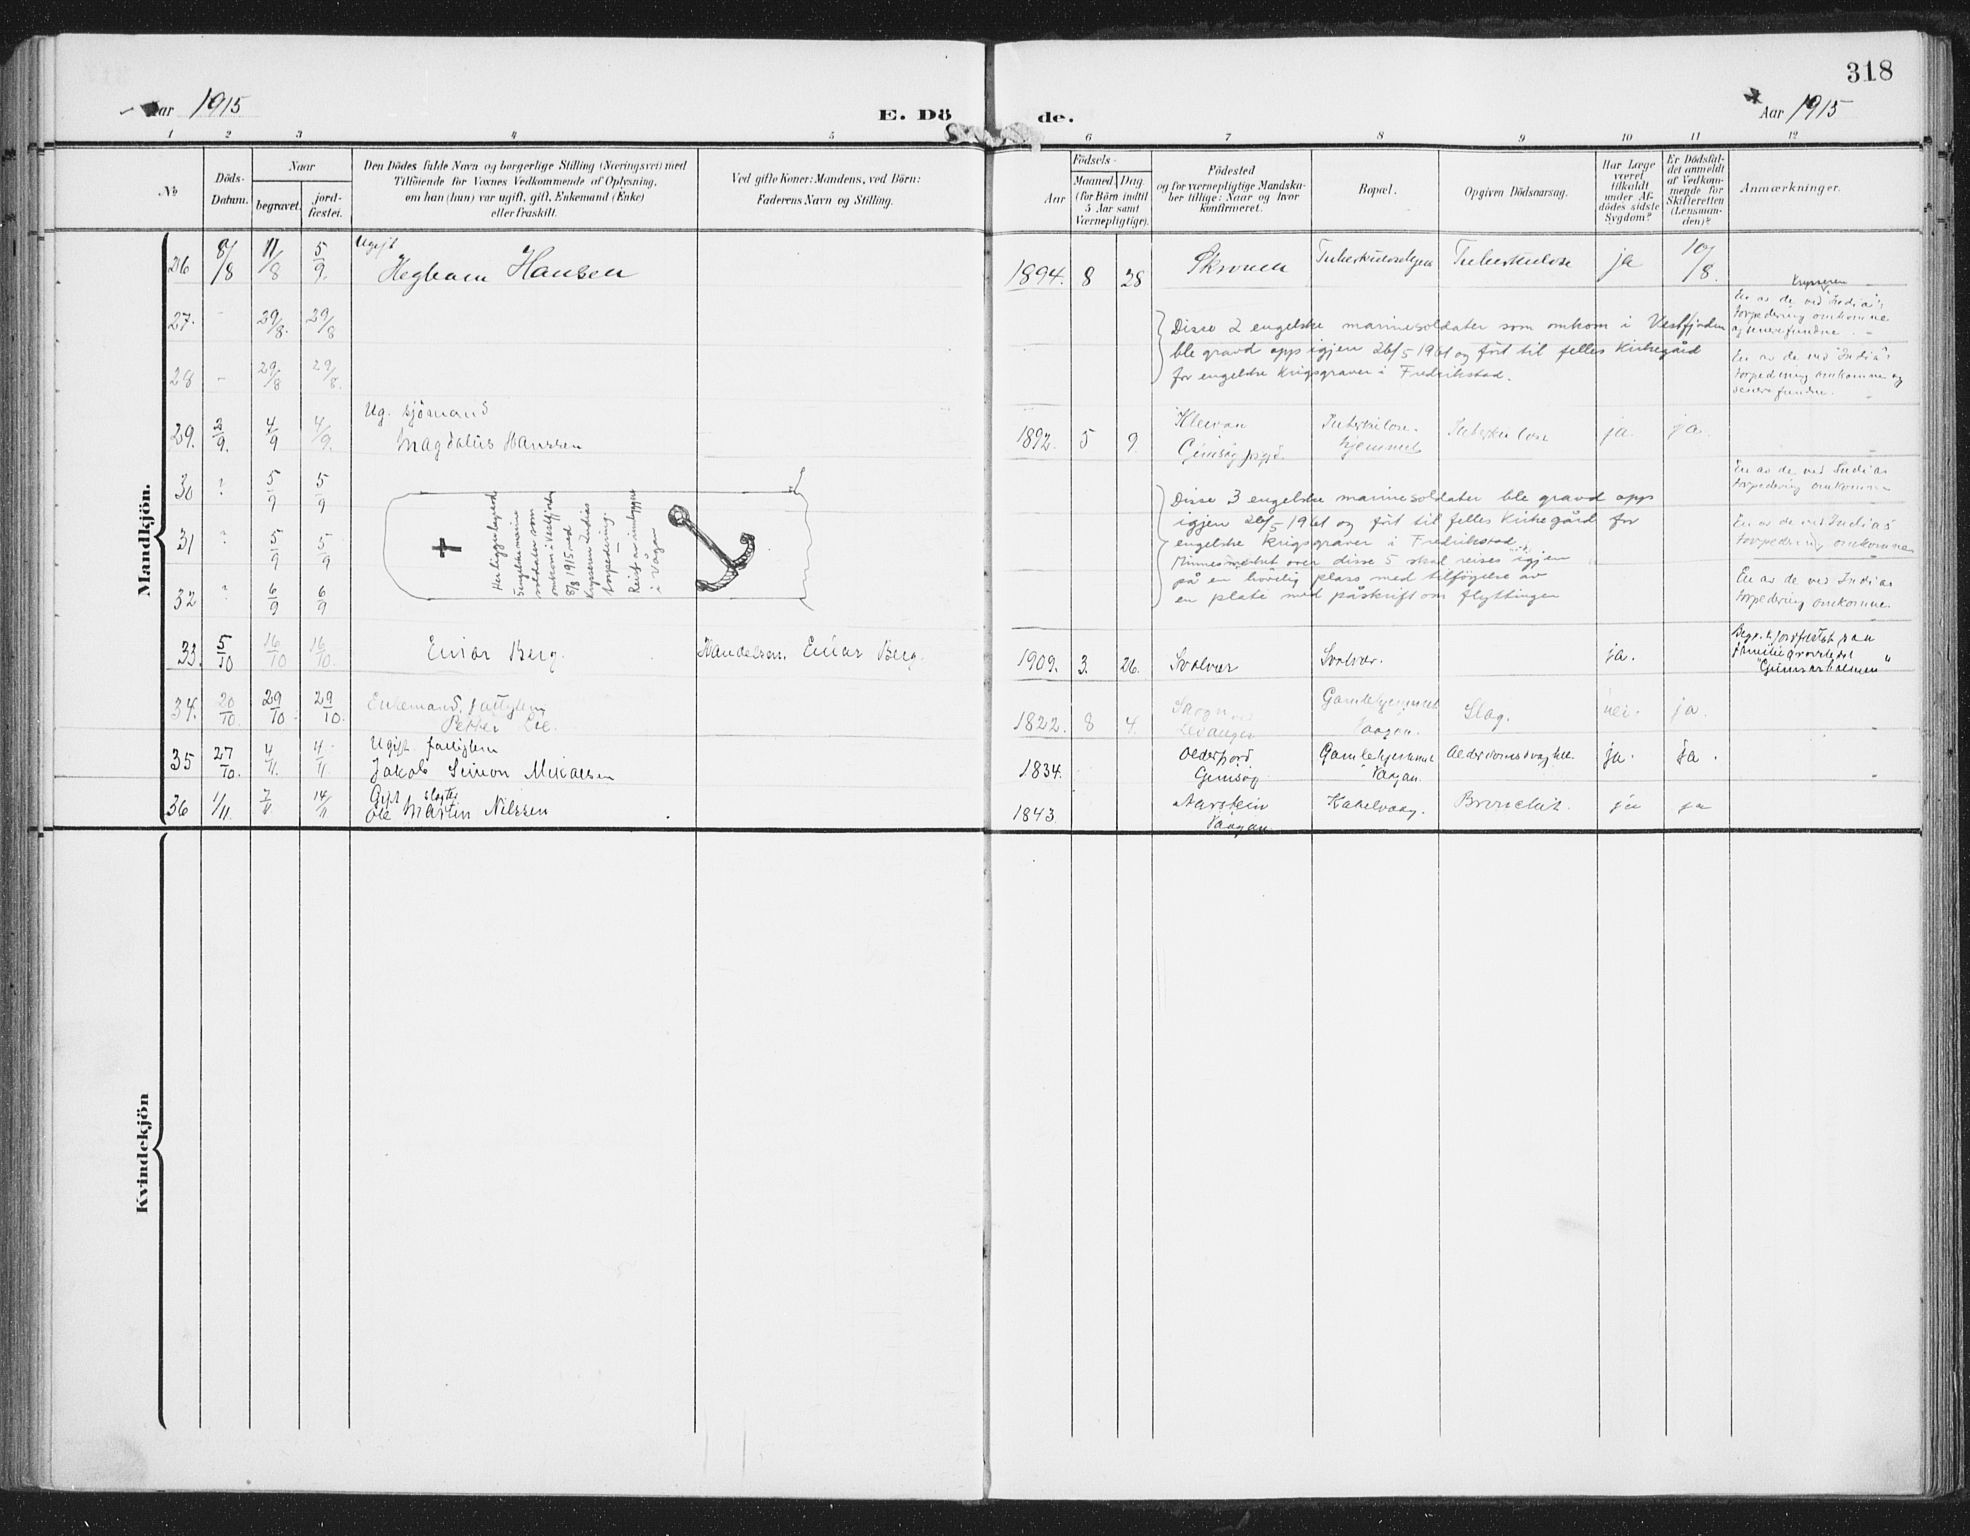 318
Aar 1915
E. Dö
de.
Aar 1915
1 2 3 4 5 6 7 8 9 10 11 12
No
Döds-
Datum.
Naar
begravet.
jord-
fæstet.
Den Dödes fulde Navn og borgerlige Stilling (Næringsvei) med
Tilföiende for Voxnes Vedkommende af Oplysning,
om han (hun) var ugift, gift, Enkemand (Enke)
eller fraskilt.
Ved gifte Koner: Mandens, ved Börn:
Faderens Navn og Stilling.
Födsels-
Aar
Maaned. Dag.
(for Börn indtil
5 Aar samt
Værnepligtige).
Födested
og for værnepligtige Mandska-
ber tillige: Naar og hvor
konfirmeret.
Bopæl.
Opgiven Dödsaarsag.
Har Læge
været
tilkaldt
under Af-
dödes sidste
Sygdom?
Er Dödsfal-
det anmeldt
af Vedkom-
mende for
Skifteretten
(Lensman-
den)?
Anmærkninger.
Mandkjön.
26 8/8 11/8 5/9 Ugift
Hansen
1894. 8 28 Tuberkulose ja 10/8.
27. - 29/8 29/8
Krysseren
En av de ved "India"s
torpedering omkomne
og senere fundne.
Disse 2 engelske marinesoldater som omkom i Vestfjorden
ble gravd opp igjen 26/5 1961 og fört til felles kirkegård
for engelske krigsgraver i Fredrikstad.
28 - 29/8 29/8.
En av de ved "India"s
torpedering omkomne og
senere fundne.
29. 3/9. 4/9 4/9. Ug. sjömand
Magdalus Hanssen
1892. 5 9. Kleivan
Gimsöy
Tuberkulose-
hjemmet
Tuberkulose ja. ja.
30 ? 5/9 5/9
En av de ved Indias
torpedering omkomne
31 ? 5/9 5/9
En av de ved Indias
torpedering omkomne
32 ? 6/9 6/9
En av de ved Indias
torpedering omkomne.
Her ligger begravd
5 engelske marine
soldater som
omkom i Vestfjorden
8/8 1915 ved
krysseren Indias
torpedering.
Reist av innbyggere
i Vågan
Disse 3 engelske marinesoldater ble gravd opp
igjen 26/5 1961 og fört til felles kirkegård for
engelske krigsgraver i Fredrikstad.
Minnesmerket over disse 5 skal reises igjen
på en hövelig plass med tilföyelse av
en plate med påskrift om flyttingen
33. 5/10 16/10 16/10. Einar Berg. Handelsm. Einar Berg.
1909. 3. 26. Svolvær Svolvær. ja.
Begr. & jordfæstet paa
familiegravstedet
"Gunnarholmen"
34. 20/10. 29/10 29/10. Enkemand, fattiglem
Petter Lie.
1822. 8 4.
Levanger
Gamlehjemmet
Vaagan.
Slag. nei. ja.
35 27/10. 4/11. 4/11 Ugift fattiglem
Jakob Simon Mikalsen
1834. Olderfjord
Gimsöy
Gamlehjemmet
Vaagan.
Alderdomssvaghet. ja. ja.
36 1/11. 7/11 14/11 Gift
Ole Martin Nilssen
1843
Vaagan
Kabelvaag. Bronchit. ja ja
Kvindekjön